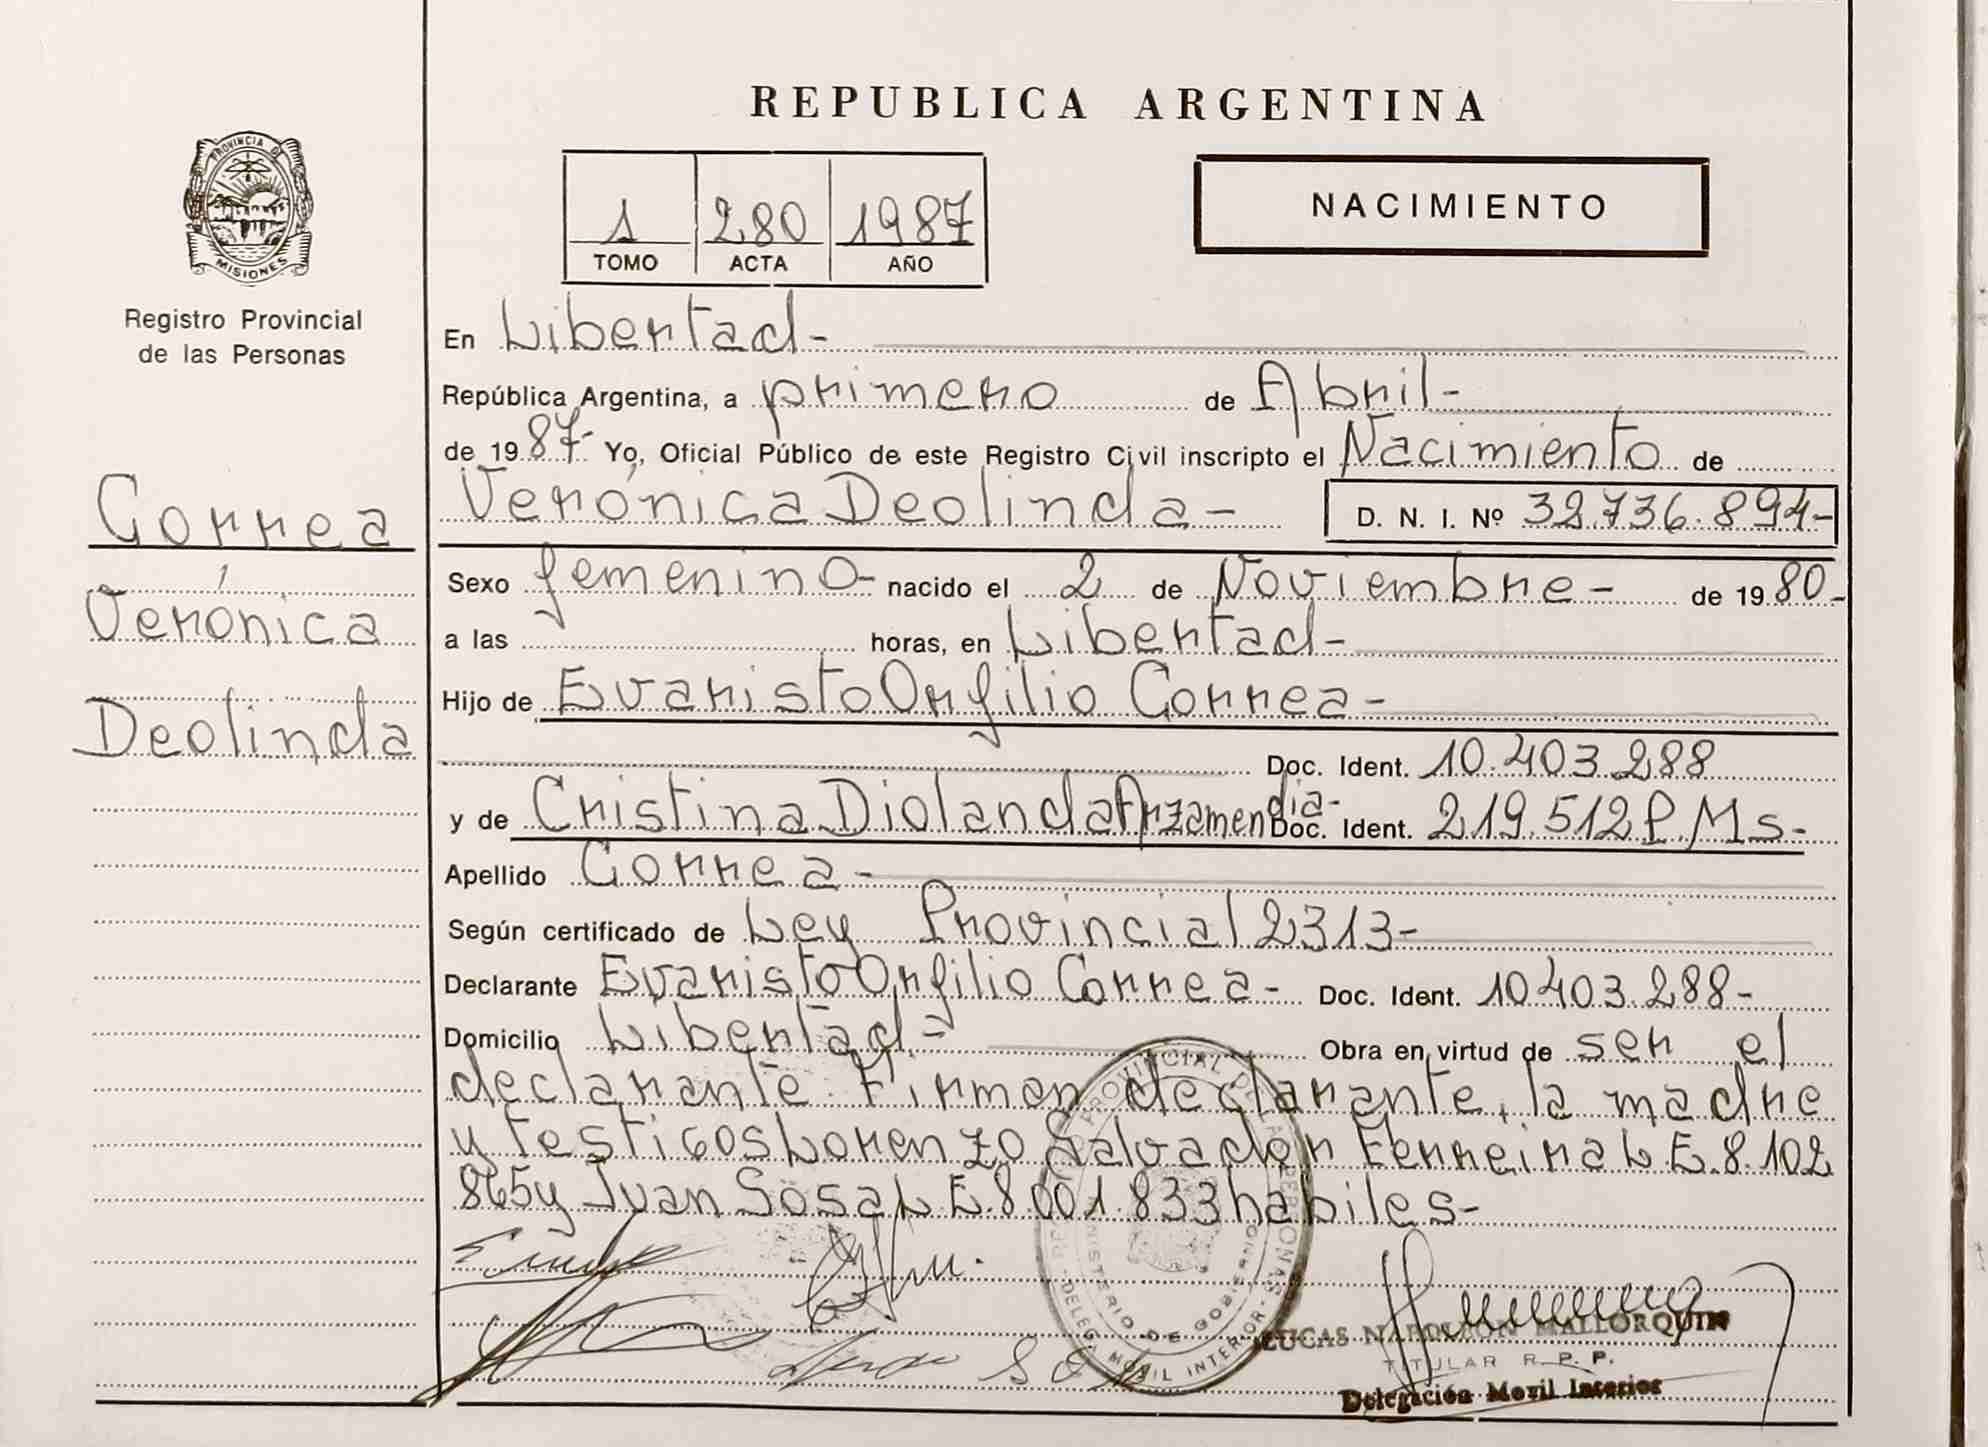 REPUBLICA ARGENTINA
PROVINCIA DE
MISIONES
Registro Provincial
de las Personas
1 280 1987
TOMO ACTA AÑO
NACIMIENTO
Correa
Verónica
Deolinda
En Libertad-
República Argentina, a primero de Abril-
de 1987- Yo, Oficial Público de este Registro Civil inscripto el Nacimiento de
Verónica Deolinda- D. N. I. Nº 32.736.894-
Sexo femenino- nacido el 2 de Noviembre- de 1980-
a las horas, en Libertad-
Hijo de Evaristo Orfilio Correa-
Doc. Ident. 10.403.288
y de Cristina Diolanda Arzamendia- Doc. Ident. 219.512 P. Ms-
Apellido Correa-
Según certificado de Ley Provincial 2313-
Declarante Evaristo Orfilio Correa- Doc. Ident. 10403.288-
Domicilio Libertad.- Obra en virtud de ser el
declarante. Firman declarante, la madre
y testigos Lorenzo Salvador Ferreira L.E.8.102
865 y Juan Sosa L.E.8001.833 habiles-
PROVINCIAL DE LAS PERSONAS
MINISTERIO DE GOBIERNO
DELEG. MOVIL INTERIOR
LUCAS NAPOLEON MALLORQUIN
TITULAR R. P. P.
Delegación Movil Interior